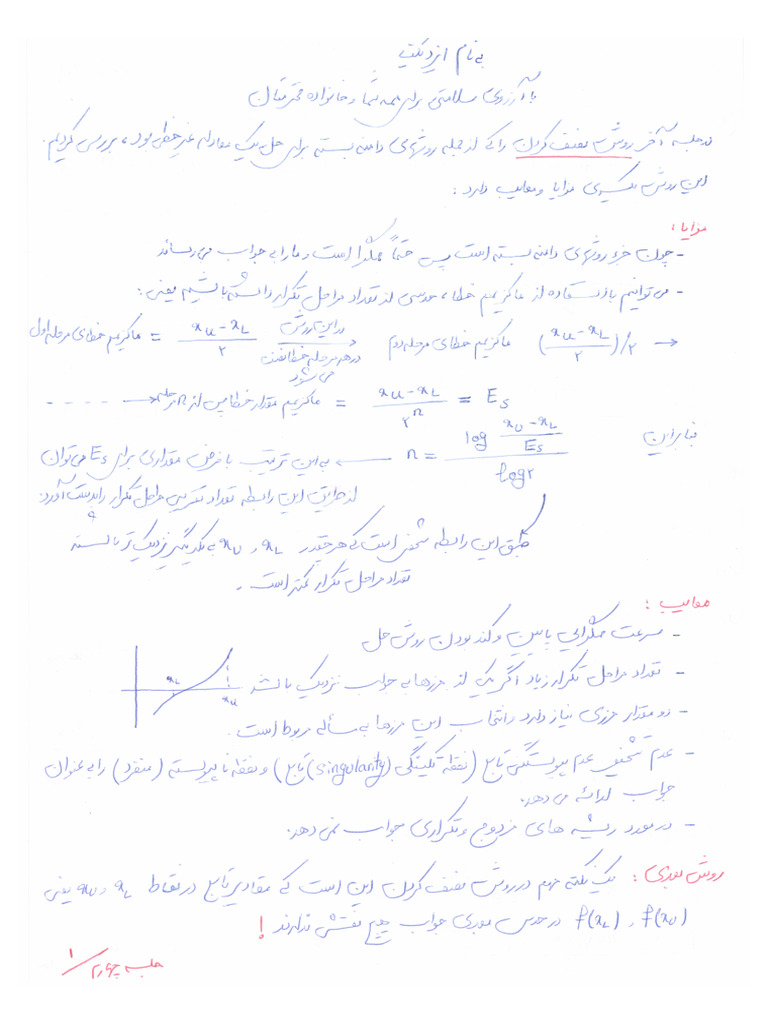 به نام ایزد یکتا
با آرزوی سلامتی برای همه شما و خانواده محترمتان
در جلسه آخر روش نصف کردن را که از جمله روشهای دامنه بسته برای حل یک معادله غیر خطی بود، بررسی کردیم.
این روش یکسری مزایا و معایب دارد:
مزایا:
- چون جزء روشهای دامنه بسته است پس حتماً همگرا است و ما را به جواب می رساند
- می توانیم با استفاده از ماکزیمم خطا، حدسی از تعداد مراحل تکرار داشته باشیم یعنی:
ماکزیمم خطای مرحله اول = (xU - xL)/۲ در این روش در هر مرحله خطا نصف می شود ماکزیمم خطای مرحله دوم ((xU - xL)/۲)/۲ →
- - - - - → ماکزیمم مقدار خطا پس از n مرحله = (xU - xL)/۲^n = Es
بنابراین n = log((xU - xL)/Es)/log۲ ← به این ترتیب با فرض مقداری برای Es می توان
از طریق این رابطه تعداد تقریبی مراحل تکرار را بدست آورد.
طبق این رابطه مشخص است که هر چقدر xL و xU به یکدیگر نزدیک تر باشند
تعداد مراحل تکرار کمتر است.
معایب:
- سرعت همگرایی پایین و کند بودن روش حل
- تعداد مراحل تکرار زیاد اگر یکی از مرزها به جواب نزدیک باشد
xL xU
- دو مقدار مرزی نیاز دارد و انتخاب این مرزها به مسأله مربوط است.
- عدم تشخیص عدم پیوستگی تابع (نقطه تکینگی (singularity) تابع) و نقطه ناپیوسته (منفرد) را به عنوان
جواب ارائه می دهد.
- در مورد ریشه های مزدوج و تکراری جواب نمی دهد.
روش بعدی: یک نکته مهم در روش نصف کردن این است که مقادیر تابع در نقاط xL و xU یعنی
f(xU) و f(xL) در حدس بعدی جواب هیچ نقشی ندارند!
جلسه چهارم / ۱